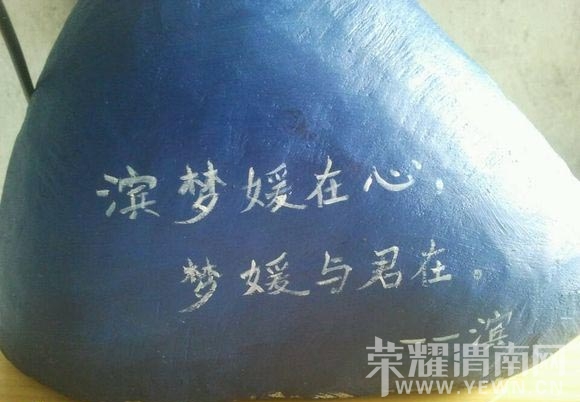 滨梦媛在心，
梦媛与君在。
——滨
荣耀渭南网
WWW.YEWN.CN